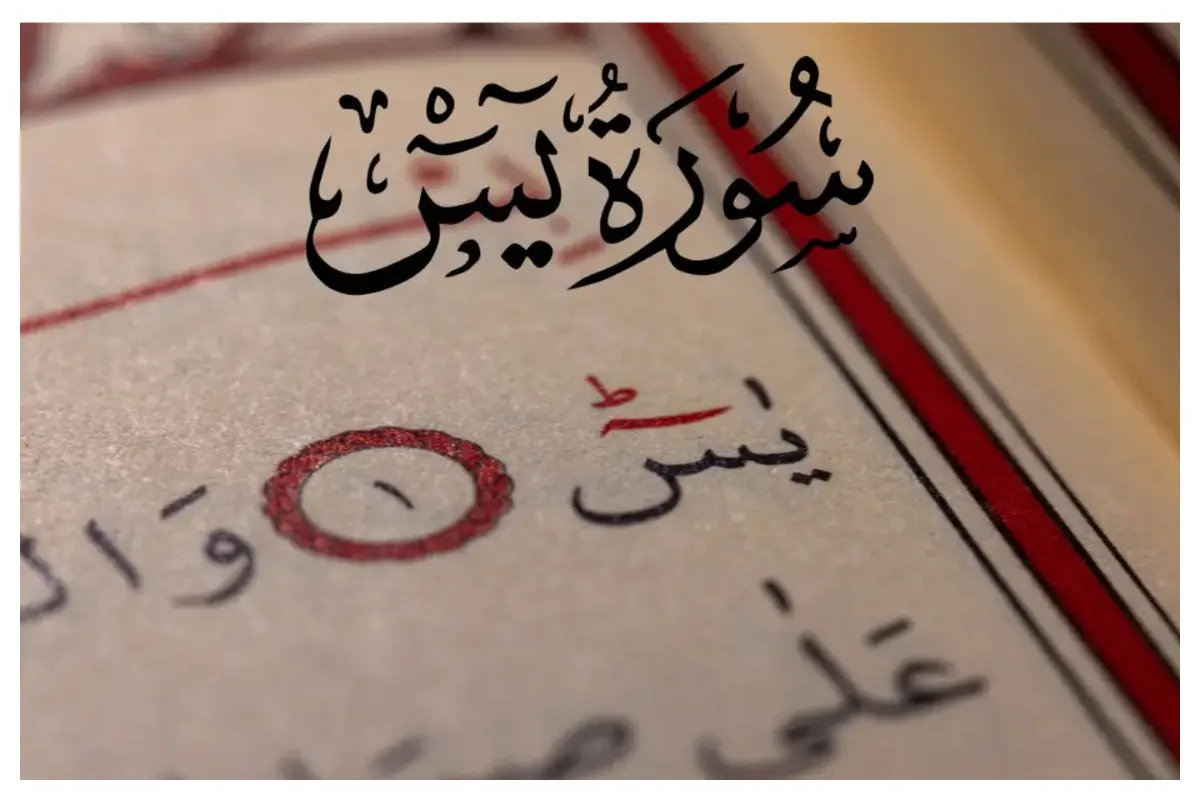 سُورَةُ يسٓ
يٰسٓ ۚ ١ وَال
عَلٰى